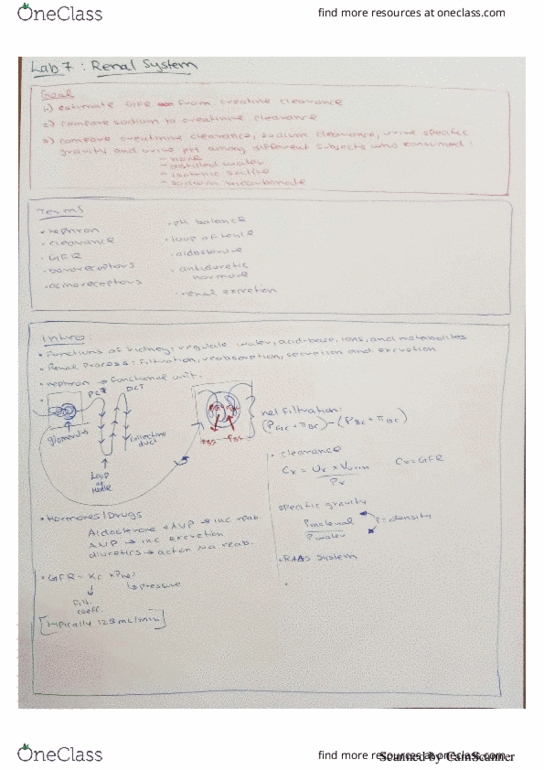 OneClass
find more resources at oneclass.com
Lab 7 : Renal System
Goal
1) estimate GFR from creatine clearance
2) compare sodium to creatinine clearance
3) compare creatinine clearance, sodium clearance, urine specific
gravity and urine pH among different subjects who consumed:
- none
- distilled water
- isotonic saline
- sodium bicarbonate
Terms
• nephron
• clearance
• GFR
• baroreceptors
• osmoreceptors
• pH balance
• loop of Henle
• aldosterone
• antidiuretic
hormone
• renal excretion
Intro:
• Functions of kidney: regulate water, acid-base, ions, and metabolites
• Renal Process: filtration, reabsorption, secretion and excretion
• nephron → functional unit.
PCT
DCT
glomerulus
collecting
duct
Loop
of
Henle
net filtration:
(PGC + πBC) - (PBC + πGC)
• clearance
Cx = Ux × Vurin
Px
Cx = GFR
specific gravity
ρmaterial
ρwater
ρ = density
• RAAS System
• Hormones/Drugs
Aldosterone + AVP → inc reab.
ANP → inc excretion
diuretics → act on Na reab.
• GFR = Kf × Pnet
pressure
filt.
coeff.
[typically 125 mL/min]
OneClass
find more resources at oneclass.com
Scanned by CamScanner